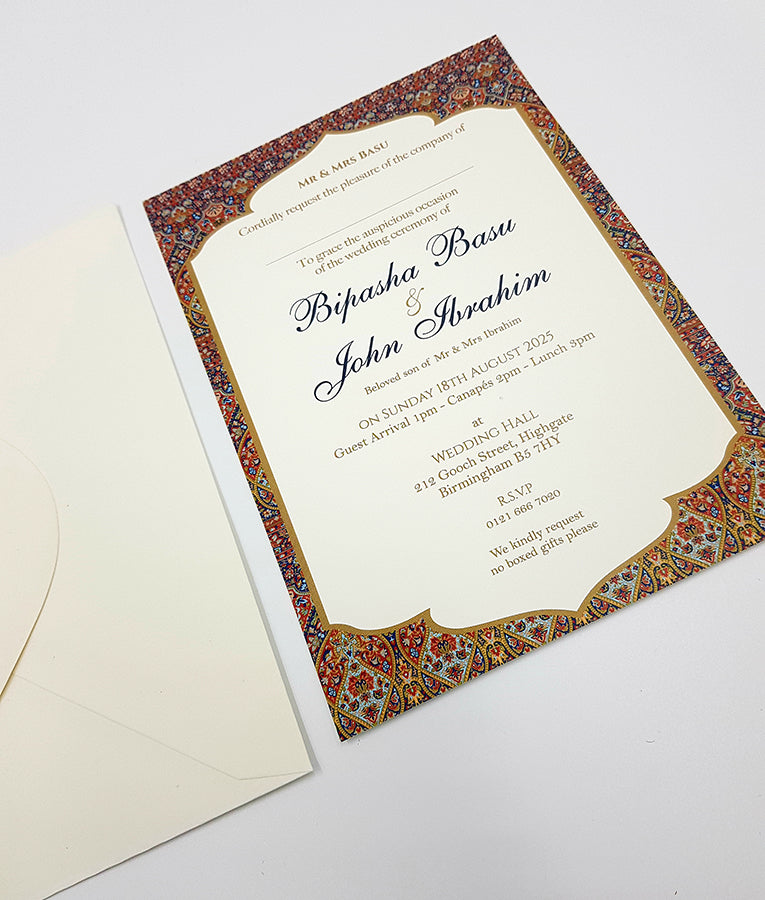 Mr & Mrs Basu
Cordially request the pleasure of the company of
To grace the auspicious occasion
of the wedding ceremony of
Bipasha Basu
&
John Ibrahim
Beloved son of Mr & Mrs Ibrahim
ON SUNDAY 18TH AUGUST 2025
Guest Arrival 1pm - Canapés 2pm - Lunch 3pm
at
WEDDING HALL
212 Gooch Street, Highgate
Birmingham B5 7HY
R.S.V.P
0121 666 7020
We kindly request
no boxed gifts please